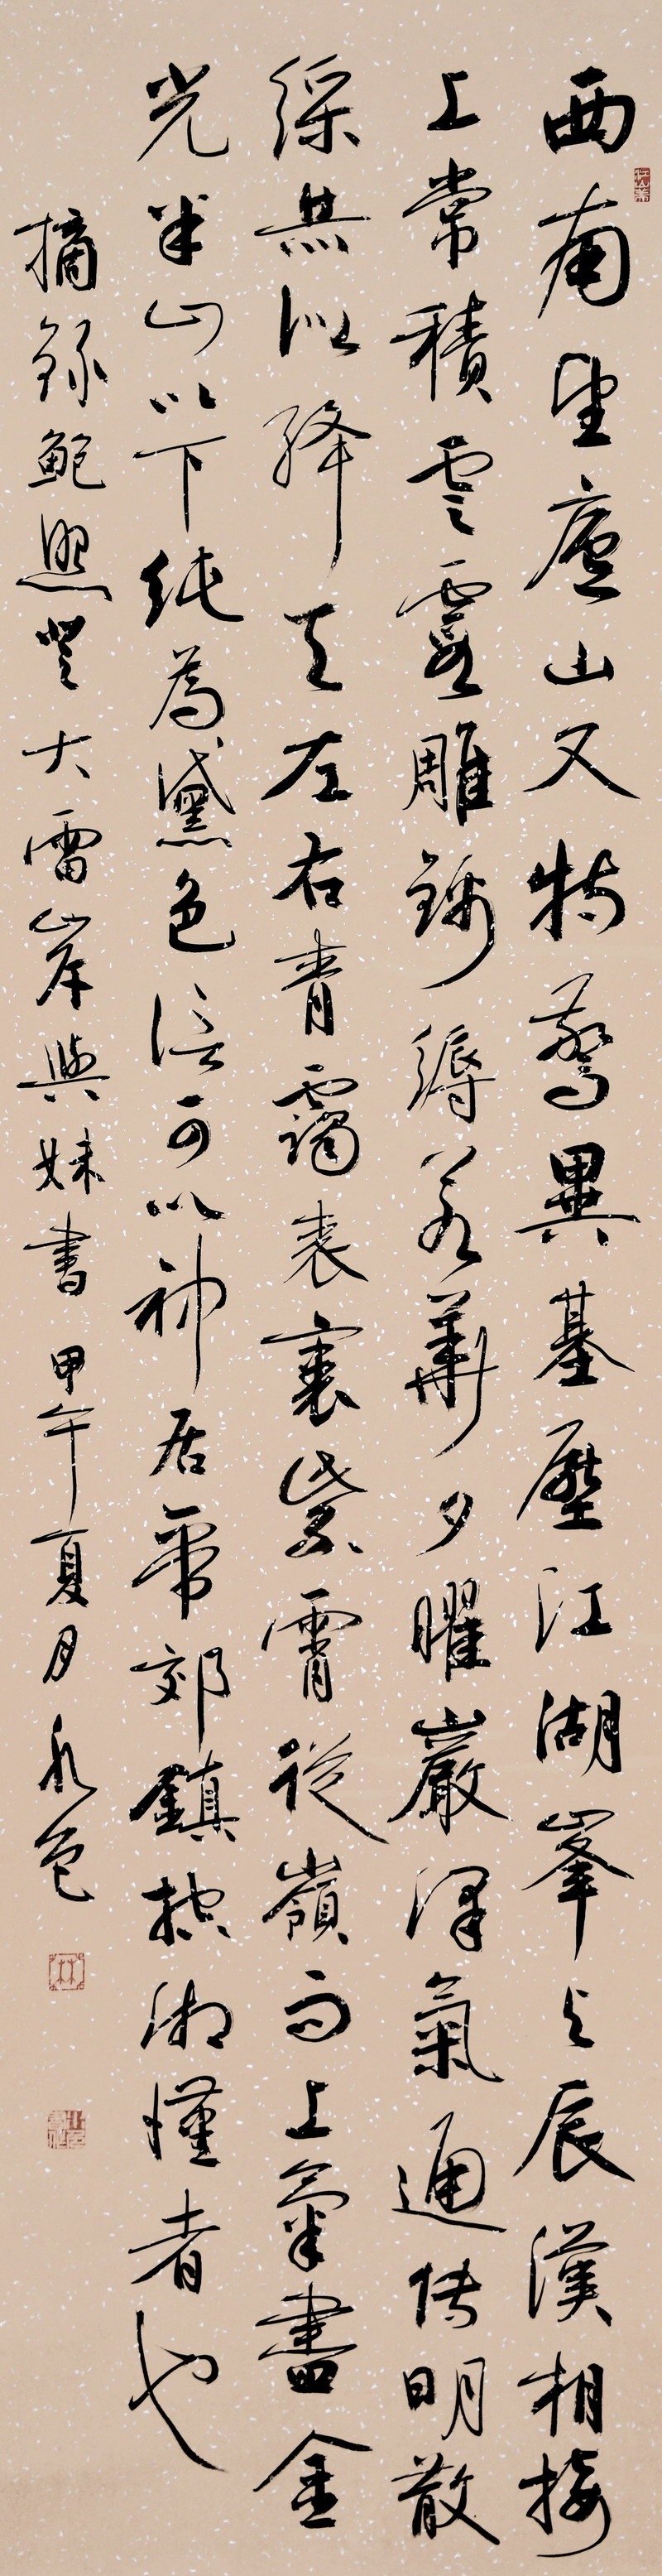 西南望廬山又特驚異基壓江湖峯与辰漢相接
上常積雲霞雕錦縟若華夕曜巖澤氣通傳明散
綵赫似絳天左右青靄表裏紫霄從嶺而上氣盡金
光半山以下純為黛色信可以神居帝郊鎮控湘漢者也
摘錄鮑照登大雷岸與妹書 甲午夏月
林